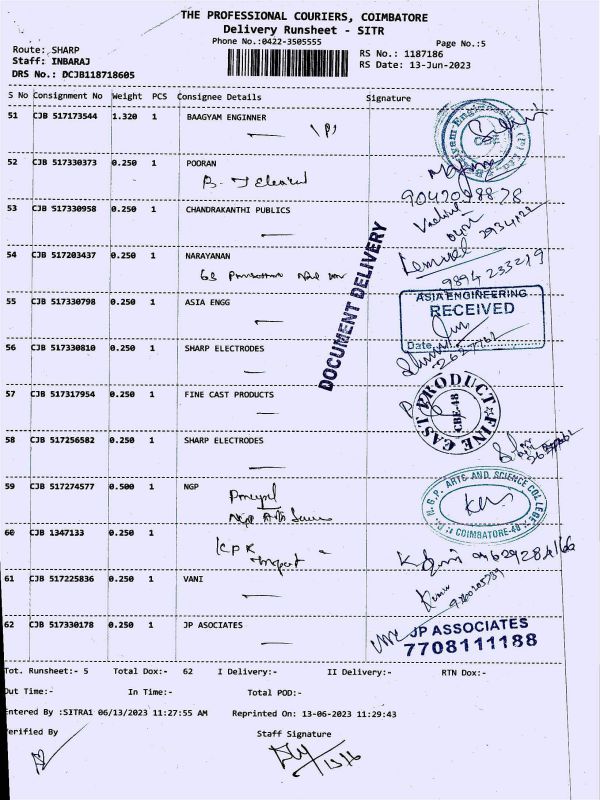 THE PROFESSIONAL COURIERS, COIMBATORE
Delivery Runsheet - SITR
Phone No.:0422-3505555
Page No.:5
Route: SHARP
Staff: INBARAJ
DRS No.: DCJB118718605
RS No.: 1187186
RS Date: 13-Jun-2023
S No Consignment No Weight PCS Consignee Details Signature
51 CJB 517173544 1.320 1 BAAGYAM ENGINNER
52 CJB 517330373 0.250 1 POORAN
9042098878
53 CJB 517330958 0.250 1 CHANDRAKANTHI PUBLICS
54 CJB 517203437 0.250 1 NARAYANAN
9894 233219
DOCUMENT DELIVERY
55 CJB 517330798 0.250 1 ASIA ENGG
ASIA ENGINEERING
RECEIVED
Date
56 CJB 517330810 0.250 1 SHARP ELECTRODES
57 CJB 517317954 0.250 1 FINE CAST PRODUCTS
FINE CAST PRODUCT
CBE-48
58 CJB 517256582 0.250 1 SHARP ELECTRODES
59 CJB 517274577 0.500 1 NGP
Principal
NGP Arts
Dr. N.G.P. ARTS AND SCIENCE COLLEGE
COIMBATORE-48
60 CJB 1347133 0.250 1
KPK
61 CJB 517225836 0.250 1 VANI
62 CJB 517330178 0.250 1 JP ASOCIATES
JP ASSOCIATES
7708111188
Tot. Runsheet:- 5 Total Dox:- 62 I Delivery:- II Delivery:- RTN Dox:-
Out Time:- In Time:- Total POD:-
Entered By :SITRA1 06/13/2023 11:27:55 AM Reprinted On: 13-06-2023 11:29:43
Verified By Staff Signature